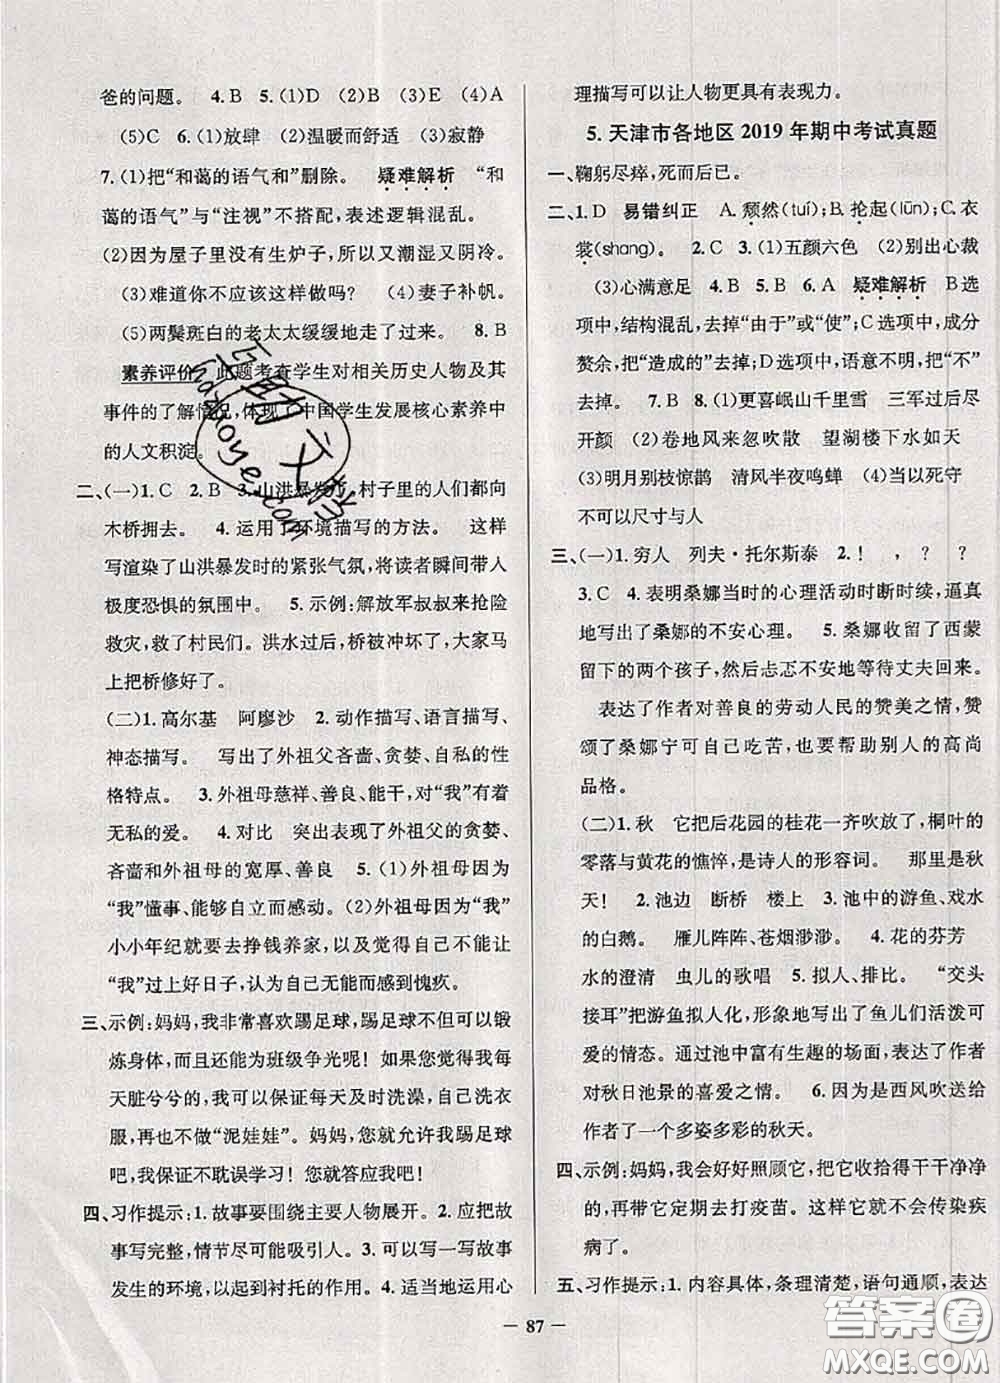 爸的问题。 4.B 5.(1)D (2)B (3)E (4)A
(5)C 6.(1)放肆 (2)温暖而舒适 (3)寂静
7.(1)把“和蔼的语气和”删除。 疑难解析 “和
蔼的语气”与“注视”不搭配,表述逻辑混乱。
(2)因为屋子里没有生炉子,所以又潮湿又阴冷。
(3)难道你不应该这样做吗? (4)妻子补帆。
(5)两鬓斑白的老太太缓缓地走了过来。 8.B
素养评价 此题考查学生对相关历史人物及其
事件的了解情况,体现了中国学生发展核心素养中
的人文积淀。
二、(一)1.C 2.B 3.山洪暴发了,村子里的人们都向
木桥拥去。 4.运用了环境描写的方法。 这样
写渲染了山洪暴发时的紧张气氛,将读者瞬间带人
极度恐惧的氛围中。 5.示例:解放军叔叔来抢险
救灾,救了村民们。洪水过后,桥被冲坏了,大家马
上把桥修好了。
(二)1.高尔基 阿廖沙 2.动作描写、语言描写、
神态描写。 写出了外祖父吝啬、贪婪、自私的性
格特点。 3.外祖母慈祥、善良、能干,对“我”有着
无私的爱。 4.对比 突出表现了外祖父的贪婪、
吝啬和外祖母的宽厚、善良 5.(1)外祖母因为
“我”懂事、能够自立而感动。(2)外祖母因为“我”
小小年纪就要去挣钱养家,以及觉得自己不能让
“我”过上好日子,认为自己无能而感到愧疚。
三、示例:妈妈,我非常喜欢踢足球,踢足球不但可以锻
炼身体,而且还能为班级争光呢!如果您担心我每
天脏兮兮的,我保证每天及时洗澡,还自己洗衣
服,再也不做“泥娃娃”。妈妈,您就允许我踢足球
吧,我保证不耽误学习!您就答应我吧!
四、习作提示:1.故事要围绕主要人物展开。2.应把故
事写完整,情节尽可能吸引人。3.可以写一写故事
发生的环境,以起到衬托的作用。4.适当地运用心
理描写可以让人物更具有表现力。
5.天津市各地区2019年期中考试真题
一、鞠躬尽瘁,死而后已。
二、1.D 易错纠正 A.颓然(tuí);B.抡起(lūn);C.衣
裳(shang)。 2.C 3.(1)五颜六色 (2)别出心裁
(3)心满意足 4.B 5.B 6.A 疑难解析 B选
项中,结构混乱,去掉“由于”或“使”;C选项中,成分
赘余,把“造成的”去掉;D选项中,语意不明,把“不”
去掉。 7.B 8.(1)更喜岷山千里雪 三军过后尽
开颜 (2)卷地风来忽吹散 望湖楼下水如天
(3)明月别枝惊鹊 清风半夜鸣蝉 (4)当以死守
不可以尺寸与人
三、(一)1.穷人 列夫·托尔斯泰 2.! , ? ?
3.C 4.表明桑娜当时的心理活动时断时续,逼真
地写出了桑娜的不安心理。 5.桑娜收留了西蒙
留下的两个孩子,然后忐忑不安地等待丈夫回来。
表达了作者对善良的劳动人民的赞美之情,赞
颂了桑娜宁可自己吃苦,也要帮助别人的高尚
品格。
(二)1.秋 它把后花园的桂花一齐吹放了,桐叶的
零落与黄花的憔悴,是诗人的形容词。 那里是秋
天! 2.池边 断桥 楼上 3.池中的游鱼、戏水
的白鹅。 雁儿阵阵、苍烟渺渺。 4.花的芬芳
水的澄清 虫儿的歌唱 5.拟人、排比。 “交头
接耳”把游鱼拟人化,形象地写出了鱼儿们活泼可
爱的情态。通过池中富有生趣的画面,表达了作者
对秋日池景的喜爱之情。 6.因为是西风吹送给
作者了一个多姿多彩的秋天。
四、示例:妈妈,我会好好照顾它,把它收拾得干干净净
的,再带它定期去打疫苗。这样就不会传染疾
病了。
五、习作提示:1.内容具体,条理清楚,语句通顺,表达
— 87 —
互助文档
hazuoye.com
答案圈
MXQE.COM